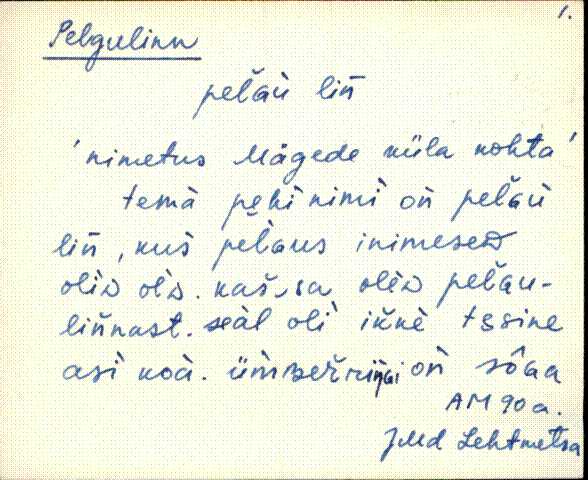 1.
Pelgulinn
pelɢ̌aù lin̄
'nimetus Mägede küla kohta'
temà pèhi nimì on̄ pelɢ̌aù
lin̄, kus̀ pelɢ̌aus inimeseᴅ
oliᴅ olìᴅ. kas̆, sa olèᴅ pelɢ̌au-
lin̄nast. seàl oli ik̆kè tɛsine
asì koà. ümʙer̆riŋ̄ɢi on̄ sôɢa
AM 90 a.
J. Md Lehtmetsa